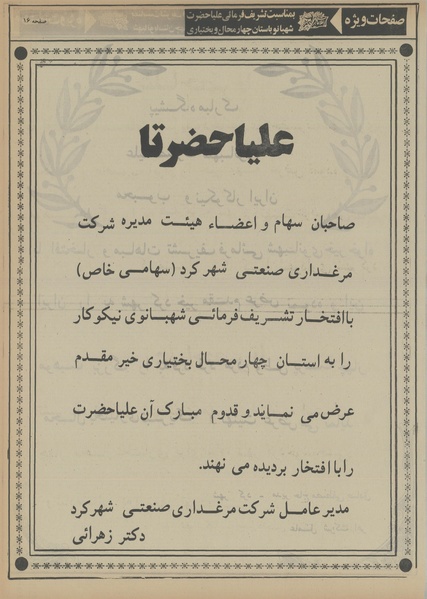 صفحات ویژه
بمناسبت تشریف فرمائی علیاحضرت
شهبانو باستان چهارمحال و بختیاری
صفحه ۱۶
علیاحضرتا
صاحبان سهام و اعضاء هیئت مدیره شرکت
مرغداری صنعتی شهرکرد (سهامی خاص)
باافتخار تشریف فرمائی شهبانوی نیکوکار
را به استان چهارمحال بختیاری خیر مقدم
عرض می نماید و قدوم مبارک آن علیاحضرت
را باافتخار بردیده می نهند.
مدیر عامل شرکت مرغداری صنعتی شهرکرد
دکتر زهرائی